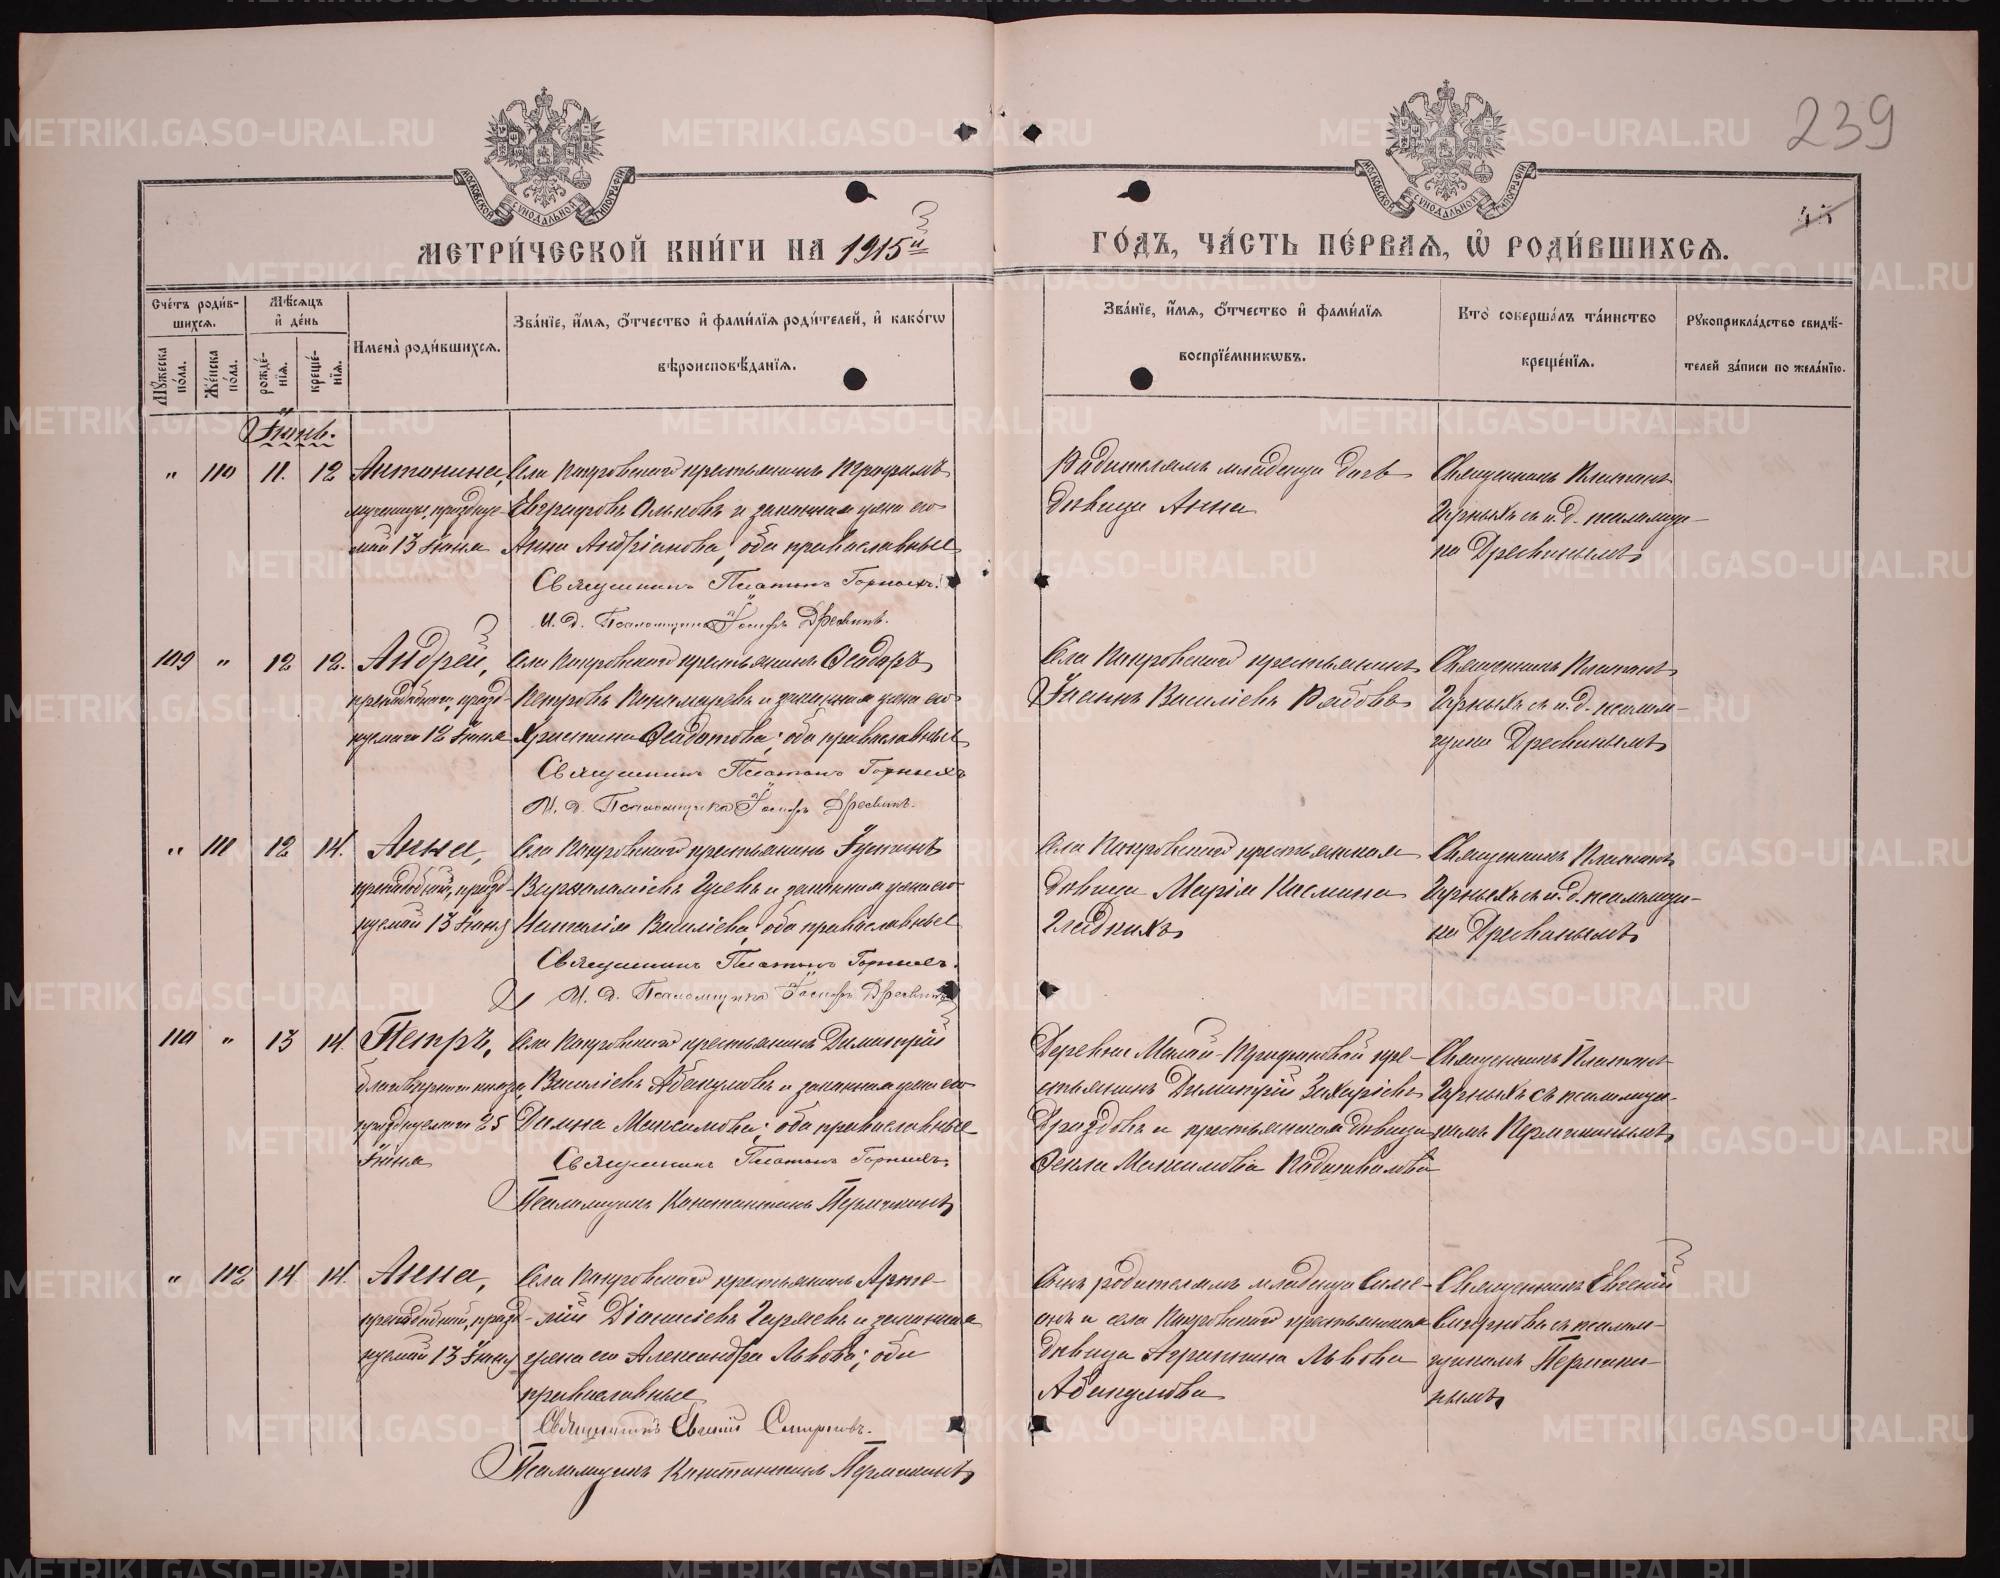 239
МОСКОВСКОЙ СѴНОДАЛЬНОЙ ТИПОГРАФІИ
МОСКОВСКОЙ СѴНОДАЛЬНОЙ ТИПОГРАФІИ
МЕТРИ́ЧЕСКОЙ КНИ́ГИ НА 1915й
ГО́ДЪ, ЧА́СТЬ ПЕ́РВАЯ, Ѡ РОДИ́ВШИХСЯ.
Сче́тъ роди́в-
шихся.
Мꙋ́жеска по́ла.
Же́нска по́ла.
Мѣ́сяцъ
и҆ де́нь
рожде́-
нїя.
креще́-
нїя.
Имена̀ роди́вшихся.
Зва́нїе, и҆́мя, ѻ҆́тчество и҆ фами́лїя роди́телей, и҆ како́гѡ
вѣроисповѣ́данїя.
Зва́нїе, и҆́мя, ѻ҆́тчество и҆ фами́лїя
воспрїе́мникѡвъ.
Кто̀ соверша́лъ та́инство
креще́нїя.
Рꙋкоприкла́дство свидѣ́-
телей за́писи по жела́нїю.
Іюнь.
" 110 11. 12 Антонина,
мученицы, праздну-
емой 13 Іюня
Села Покровскаго крестьянинъ Трофимъ
Евграфовъ Ольковъ и законная жена его
Анна Андріанова; оба православные
Священникъ Платонъ Горныхъ.
И. д. Псаломщика Іосифъ Дресвинъ.
Родителямъ младенца дочь
дѣвица Анна
Священникъ Платонъ
Горныхъ съ и. д. псаломщи-
ка Дресвинымъ
109 " 12 12. Андрей,
преподобнаго, празд-
нуемаго 12 Іюня
Села Покровскаго крестьянинъ Ѳеодоръ
Петровъ Пономаревъ и законная жена его
Христина Ѳедотова; оба православные
Священникъ Платонъ Горныхъ
И. д. Псаломщика Іосифъ Дресвинъ.
Села Покровскаго крестьянинъ
Іоаннъ Василіевъ Рябовъ
Священникъ Платонъ
Горныхъ съ и. д. псалом-
щика Дресвинымъ
" 111 12 14. Анна,
преподобной, празд-
нуемой 13 Іюня
Села Покровскаго крестьянинъ Іустинъ
Варфоламіевъ Гусевъ и законная жена его
Наталія Василіева оба православные
Священникъ Платонъ Горныхъ.
И. д. Псаломщика Іосифъ Дресвинъ
Села Покровскаго крестьянская
дѣвица Марія Космина
Гладкихъ
Священникъ Платонъ
Горныхъ съ и. д. псаломщи-
ка Дресвинымъ
110 " 13 14. Петръ,
благовѣрнаго князя,
празднуемаго 25
Іюня
Села Покровскаго крестьянинъ Димитрій
Василіевъ Абакумовъ и законная жена его
Домна Максимова; оба православные
Священникъ Платонъ Горныхъ.
Псаломщикъ Константинъ Пермикинъ
Деревни Малой-Трифоновой кре-
стьянинъ Димитрій Захаріевъ
Дроздовъ и крестьянская дѣвица
Ѳекла Максимова
Священникъ Платонъ
Горныхъ съ псаломщи-
комъ Пермикинымъ
" 112 14 14. Анна,
преподобной, празд-
нуемой 13 Іюня
Села Покровскаго крестьянинъ Арте-
мій Діонисіевъ Горяевъ и законная
жена его Александра Львова; оба
православные
Священникъ Евгеній Смирновъ.
Псаломщикъ Константинъ Пермикинъ
Сынъ родителямъ младенца Симе-
онъ и села Покровскаго крестьянская
дѣвица Агриппина Львова
Абакумова
Священникъ Евгеній
Смирновъ съ псалом-
щикомъ Пермики-
нымъ